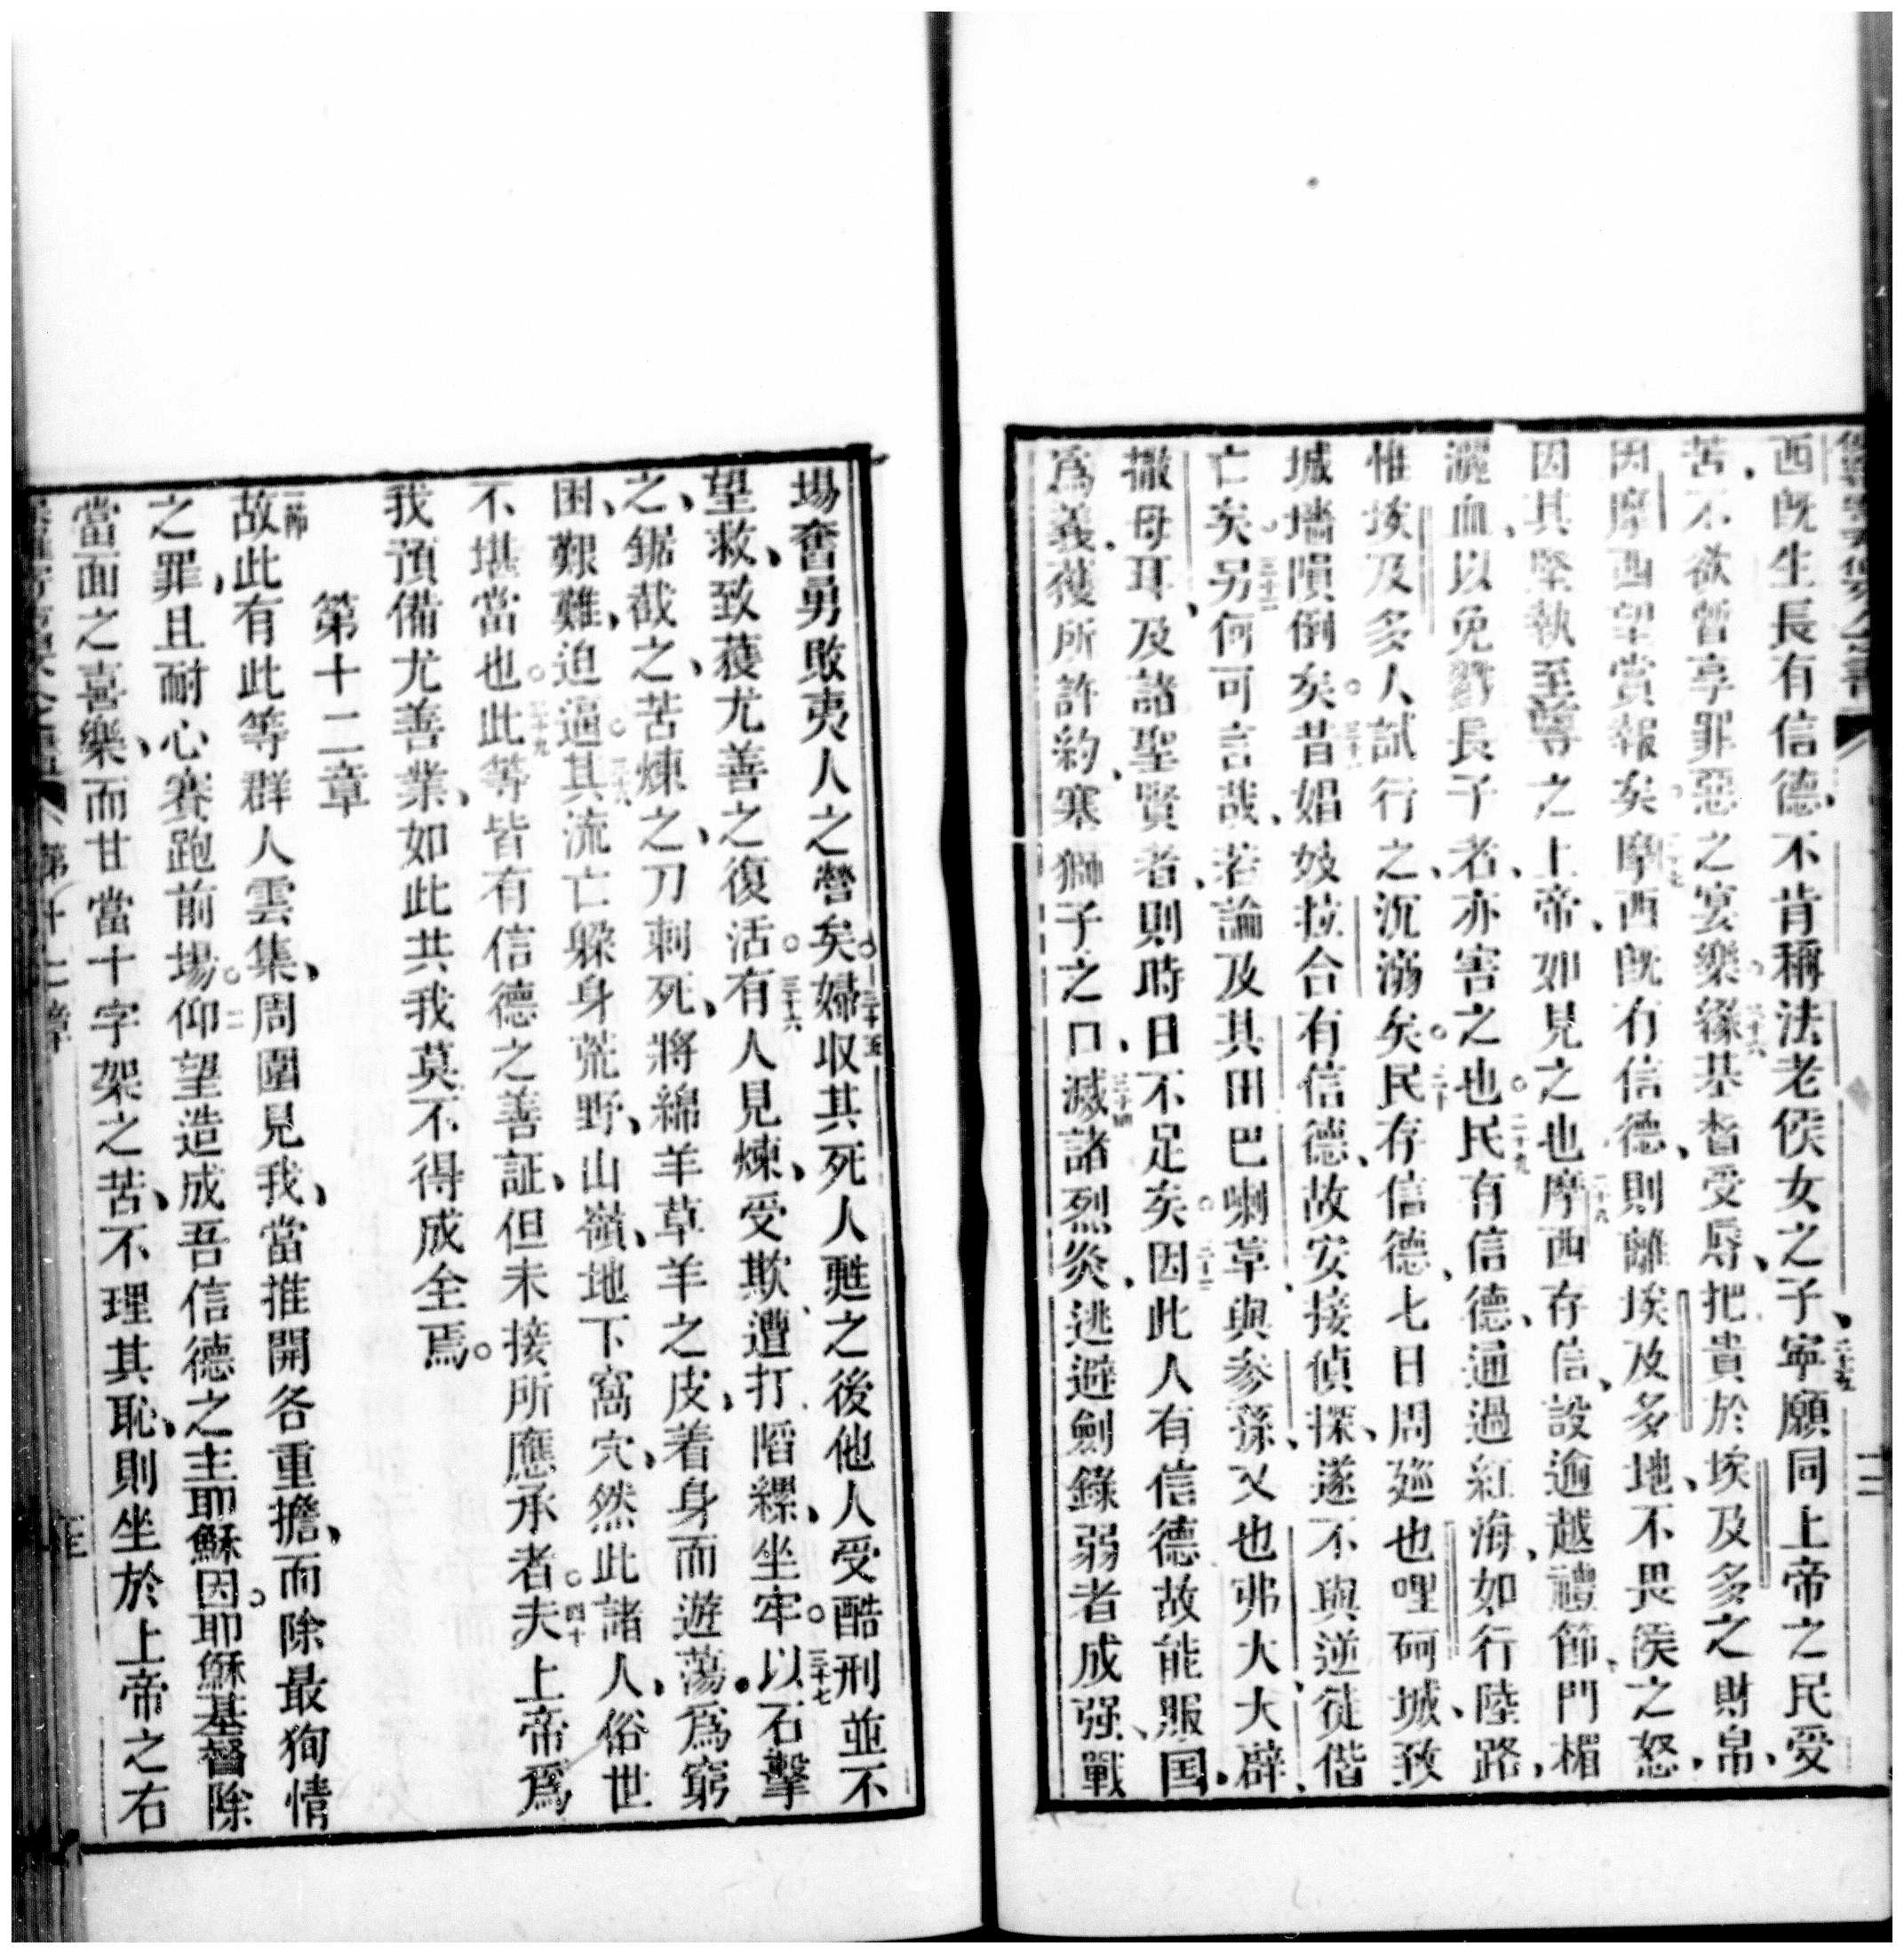 西既生長有信德、不肯稱法老侯女之子、二十五寧願同上帝之民受
苦、不欲暫享罪惡之宴樂、二十六緣基督受辱、把貴於埃及多之財帛、
因摩西望賞報矣。二十七摩西既有信德、則離埃及多地、不畏侯之怒、
因其堅執至尊之上帝、如見之也。二十八摩西存信、設逾越禮節、門楣
灑血、以免戮長子者、亦害之也。二十九民有信德、通過紅海、如行陸路、
惟埃及多人試行之、沉溺矣。三十民存信德、七日周廵也哩砢城、致
城墻隕倒矣。三十一昔娼妓拉合有信德、故安接偵探、遂不與逆徒偕
亡矣。三十二另何可言哉、若論及其田巴喇草、與參孫、又也弗大、大辟、
撒母耳、及諸聖賢者、則時日不足矣。三十三因此人有信德、故能服国、
爲義、獲所許約、塞獅子之口、三十四滅諸烈炎、逃避劍鋒、弱者成强、戰
場奮勇、敗夷人之營矣。三十五婦収其死人甦之後、他人受酷刑、並不
望救、致獲尤善之復活。三十六有人見煉、受欺、遭打、縚縲、坐牢。三十七以石擊
之、鋸截之、苦煉之、刀刺死、將綿羊草羊之皮、着身而遊蕩、爲窮
困、艱難、迫逼。三十八其流亡躲身荒野、山嶺、地下窩穴、然此諸人、俗世
不堪當也。三十九此等皆有信德之善証、但未接所應承者。四十夫上帝爲
我預備尤善業、如此共我莫不得成全焉。
第十二章
一節故此有此等群人雲集、周圍見我、當推開各重擔、而除最狥情
之罪、且耐心賽跑前場。二仰望造成吾信德之主耶穌。因耶穌基督除
當面之喜樂、而甘當十字架之苦、不理其恥、則坐於上帝之右